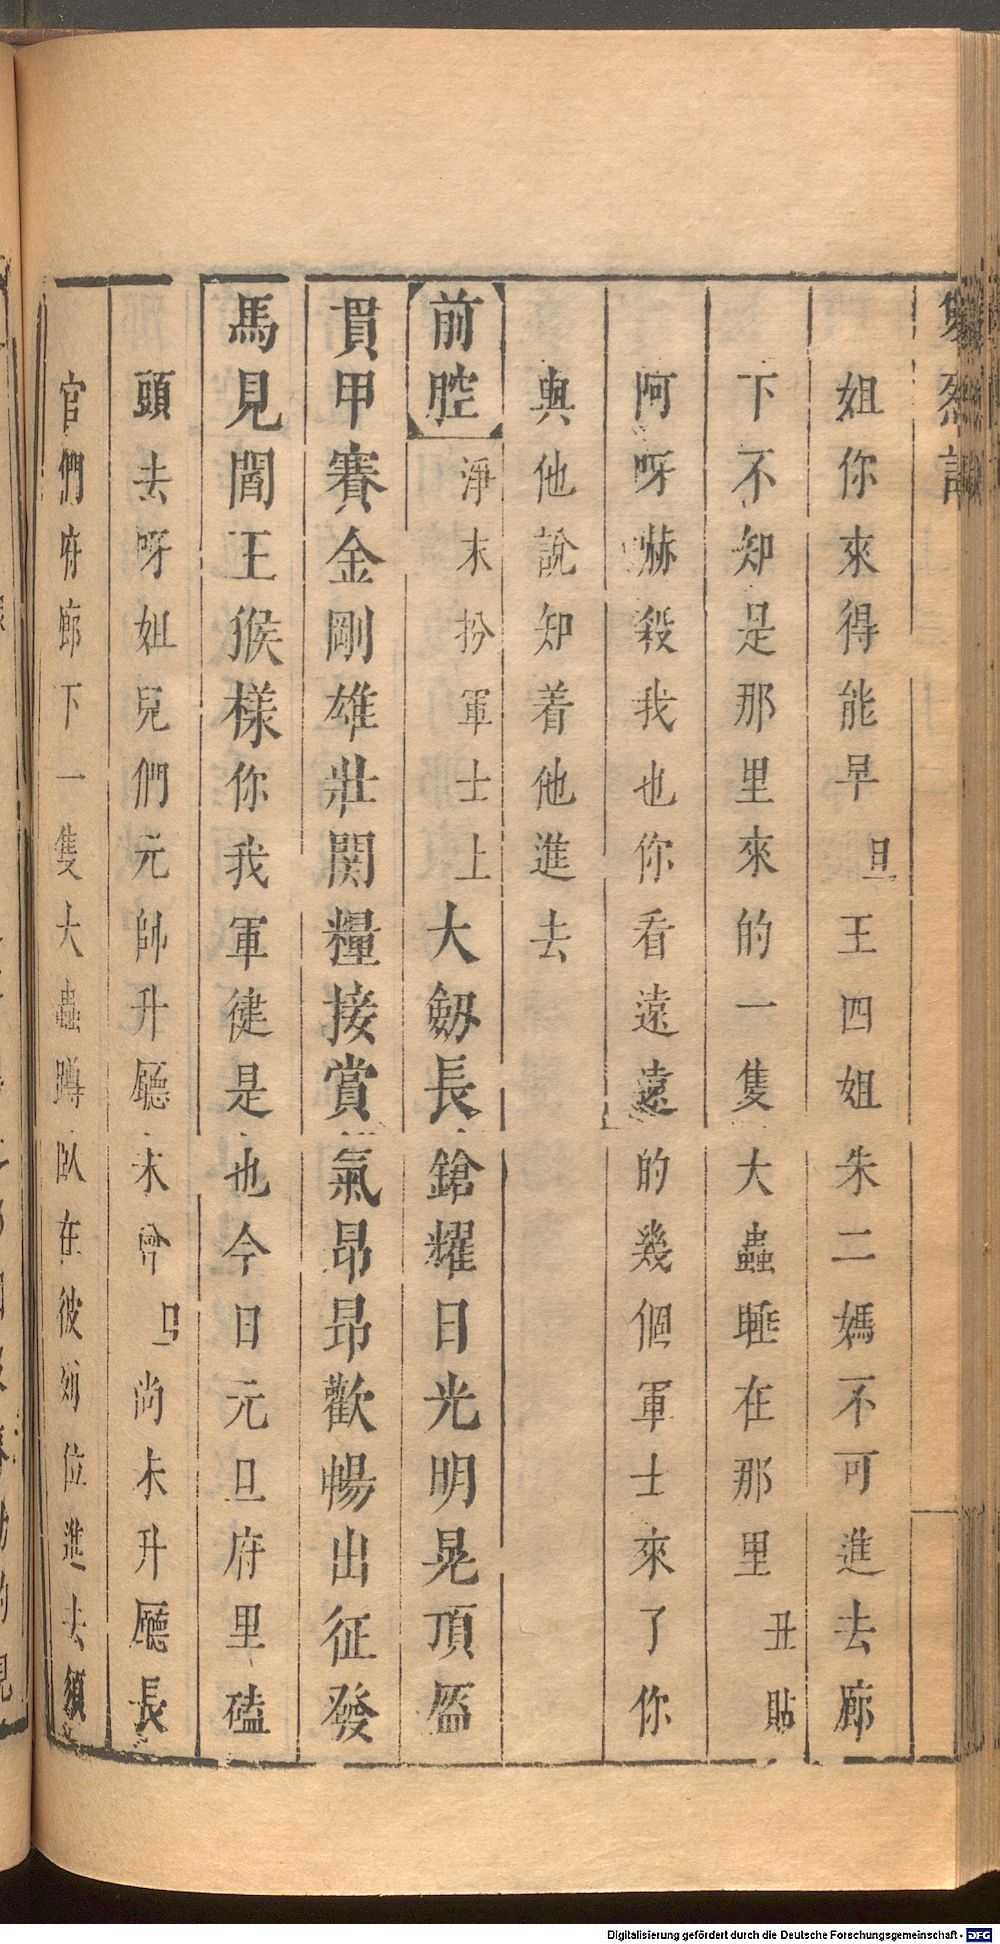 姐你來得能早旦王四姐朱二媽不可進去廊
下不知是那里來的一隻大蟲睡在那里丑貼
阿呀嚇殺我也你看遠遠的幾個軍士來了你
與他說知着他進去
前腔淨末扮軍士上大劒長鎗耀日光明晃頂盔
貫甲賽金剛雄壯関糧接賞氣昂昂歡暢出征發
馬見閻王猴樣你我軍健是也今日元旦府里磕
頭去呀姐兒們元帥升廳未曾旦尚未升廳長
官們府廊下一隻大蟲蹲臥在彼列位進去須
Digitalisierung gefördert durch die Deutsche Forschungsgemeinschaft - DFG